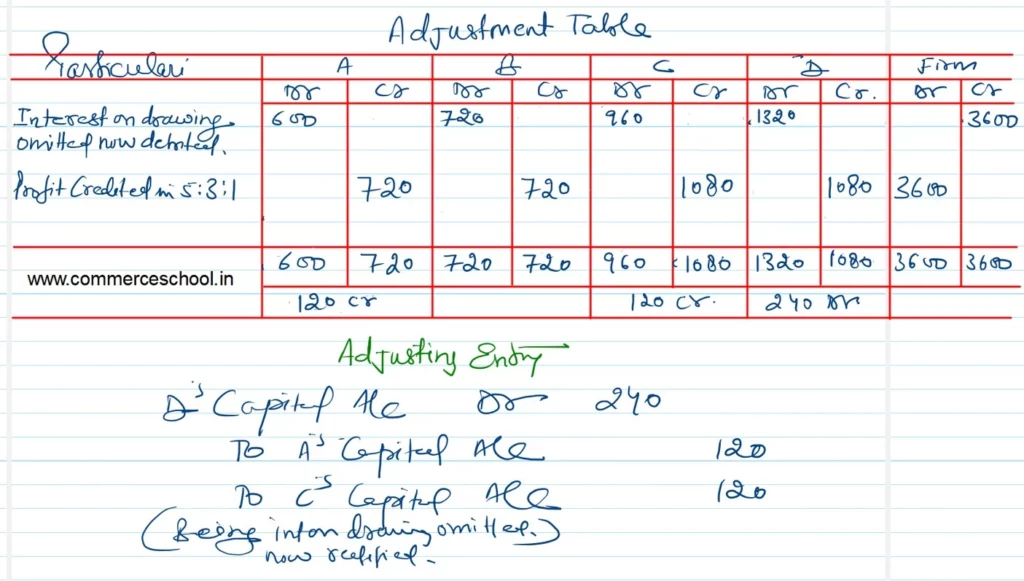 Adjustment Table
Particulars A B C D Firm
Dr Cr Dr Cr Dr Cr Dr Cr. Dr Cr
Interest on drawing 600 720 960 1320 3600
omitted now debited.
Profit Credited in 5:3:1 720 720 1080 1080 3600
www.commerceschool.in 600 720 720 720 960 1080 1320 1080 3600 3600
120 Cr 120 Cr. 240 Dr
Adjusting Entry
D's Capital A/c Dr 240
To A's Capital A/c 120
To C's Capital A/c 120
(Being int on drawing omitted.)
now rectified.